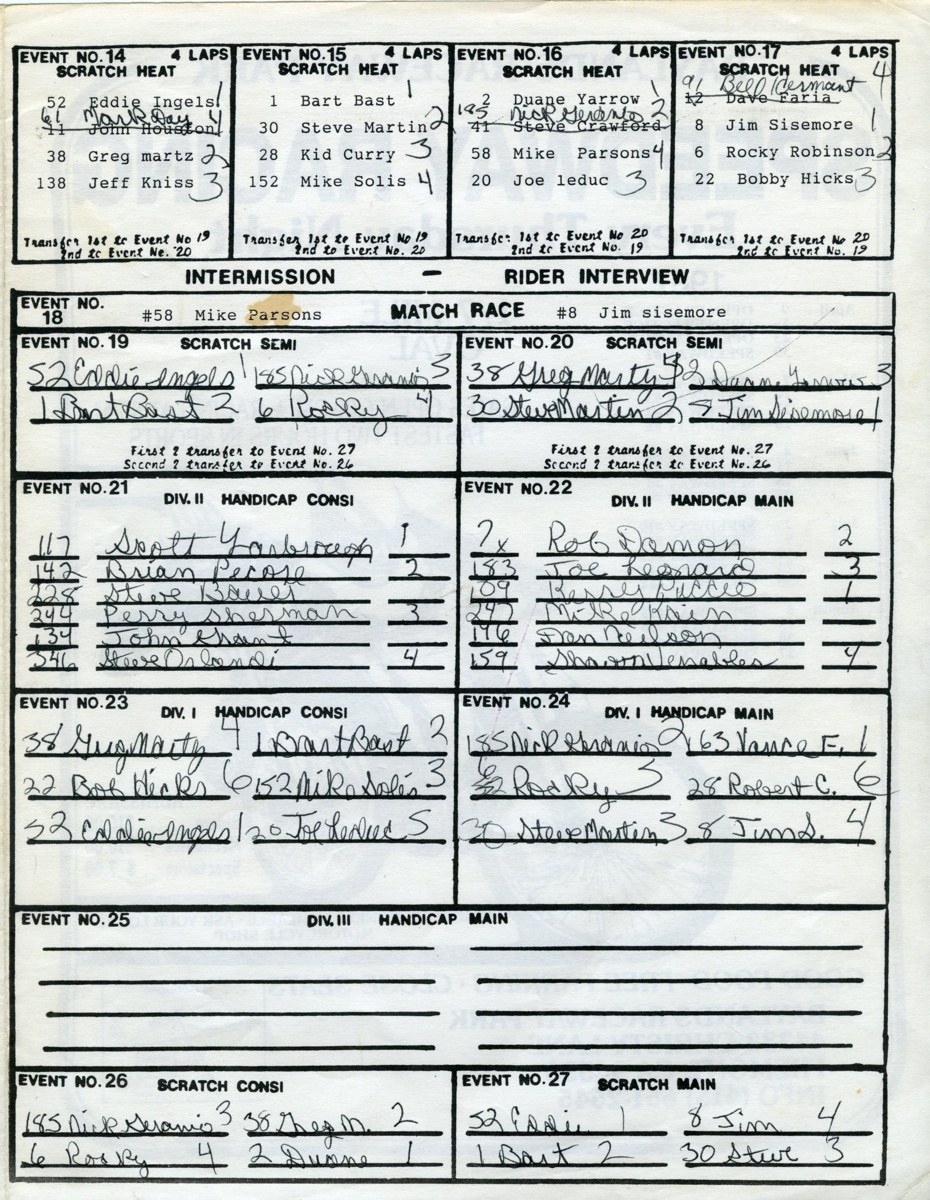 EVENT NO.14 4 LAPS
SCRATCH HEAT
52 Eddie Ingels 1
61 Mark Day 4
11 John Houston
38 Greg martz 2
138 Jeff Kniss 3
Transfer 1st to Event No 19
2nd to Event No. 20
EVENT NO.15 4 LAPS
SCRATCH HEAT
1 Bart Bast 1
30 Steve Martin 2
28 Kid Curry 3
152 Mike Solis 4
Transfer 1st to Event No 19
2nd to Event No. 20
EVENT NO.16 4 LAPS
SCRATCH HEAT
2 Duane Yarrow 1
185 Nick Geranio 2
41 Steve Crawford
58 Mike Parsons 4
20 Joe leduc 3
Transfer 1st to Event No 20
2nd to Event No. 19
EVENT NO.17 4 LAPS
SCRATCH HEAT
91 Bill 4
12 Dave Faria
8 Jim Sisemore 1
6 Rocky Robinson 2
22 Bobby Hicks 3
Transfer 1st to Event No 20
2nd to Event No. 19
INTERMISSION - RIDER INTERVIEW
EVENT NO. 18 #58 Mike Parsons MATCH RACE #8 Jim sisemore
EVENT NO.19 SCRATCH SEMI
52 Eddie Ingels 1 185 Nick Geranio 3
1 Bart Bast 2 6 Rocky 4
First 2 transfer to Event No. 27
Second 2 transfer to Event No. 26
EVENT NO.20 SCRATCH SEMI
38 Greg Marty 2 Duane Yarrow 3
30 Steve Martin 2 8 Jim Sisemore 1
First 2 transfer to Event No. 27
Second 2 transfer to Event No. 26
EVENT NO.21
DIV. II HANDICAP CONSI
117 Scott Yarbrough 1
142 Brian Pecore 2
228 Steve Bauer
244 Perry Sherman 3
134 John Grant
346 Steve Orlandi 4
EVENT NO.22
DIV. II HANDICAP MAIN
7x Rob Damon 2
183 Joe Leonard 3
109 Kerry Puccio 1
247 Mike Krien
196 Dan Neilson
159 Shawn Venables 4
EVENT NO.23
DIV. I HANDICAP CONSI
38 Greg Marty 4 1 Bart Bast 2
22 Bob Hicks 6 152 Mike Solis 3
52 Eddie Ingels 1 20 Joe Leduc 5
EVENT NO.24
DIV. I HANDICAP MAIN
185 Nick Geranio 2 63 Vance F. 1
6 Rocky 5 28 Robert C. 6
30 Steve Martin 3 8 Jim S. 4
EVENT NO.25 DIV. III HANDICAP MAIN
EVENT NO.26 SCRATCH CONSI
185 Nick Geranio 3 38 Greg M. 2
6 Rocky 4 2 Duane 1
EVENT NO.27 SCRATCH MAIN
52 Eddie 1 8 Jim 4
1 Bart 2 30 Steve 3